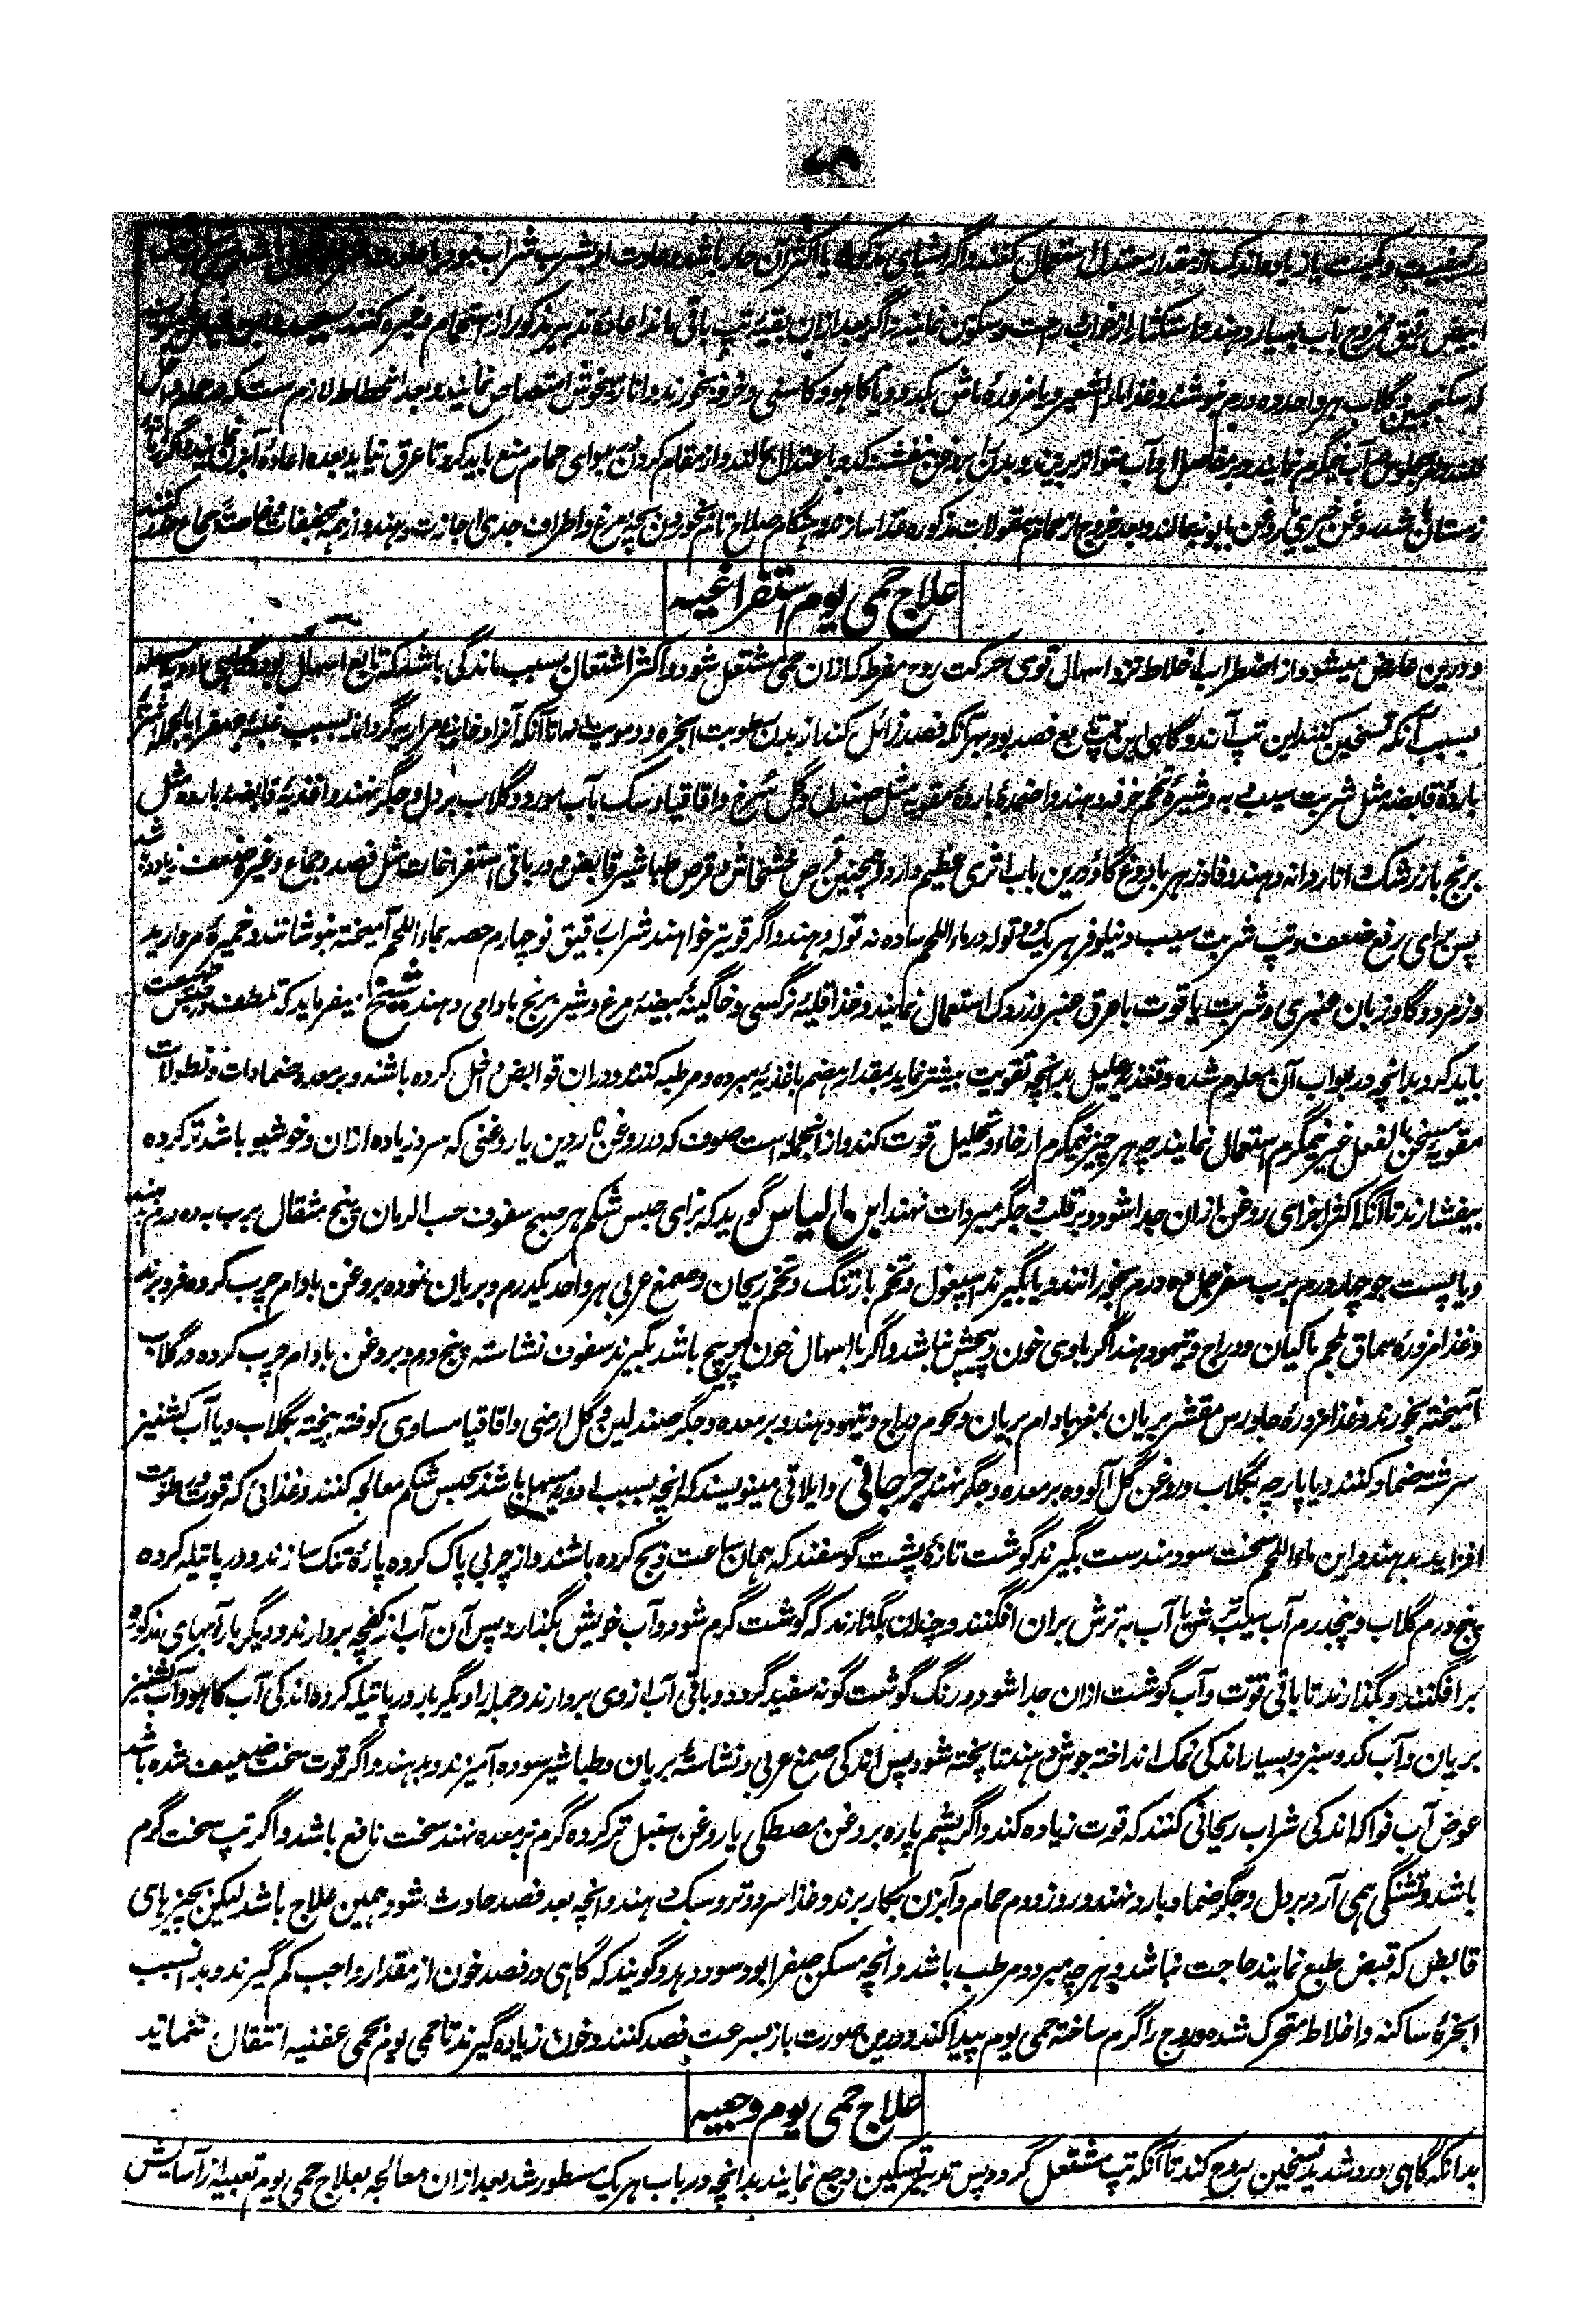 و کمیت یا زیاده اندک از مقدار معتدل استعمال کنند و اگر اشیای مذکوره یا اکثر آن حار باشد و عادت او بشرب شراب نبود
ابیض رقیق ممزوج بآب بسیار دهند و استکثار از خواب و دعت و سکون نمایند و اگر بعد ازان بقیهٔ تپ باقی ماند اعادهٔ تدبیر مذکور از استحمام و غیره کنند
از سکنجبین و گلاب هر واحد ده درم بنوشند و غذا ماء الشعیر و یا مزورهٔ ماش بکدو و یا کاهو و کاسنی و خرفه بخورند و انار میخوش امتصاص نمایند و بعد انحطاط لازم ست که در حمام داخل
جلوس در آب نیمگرم نمایند و بر مفاصل او آب متواتر بریزند و بدنش بروغن بنفشه کدو باعتدال بمالند و از مقام کردن بهوای حمام منع باید کرد تا عرق نیاید بعده اعادهٔ آبزن نمایند و اگر
زمستان باشد روغن خیری یا روغن بابونه بمالند و بعد خروج از حمام بقولات مذکوره غذا سازند و هنگام صلاح تام بخوردن بچهٔ مرغ و اطراف جدی اجازت دهند و از همه مجففات خاصة جماع حذر کنند
علاج حمی یوم استفراغیه
و درین عارض میشود از اضطراب اخلاط نزد اسهال قوی حرکت روح مفرط که ازان حمی مشتعل شود و اکثر اشتعال بسبب ماندگی باشد که تابع اسهال بود و گاهی ادویهٔ مسهله
بسبب آنکه تسخین کنند این تپ آرند و گاهی این تپ تابع فصد بود بهر آنکه فصد زائل کند از بدن رطوبت ابخره و دمویت آنها تا آنکه آنرا دخانیه مراریه گرداند بسبب غلبهٔ صفرا بالجمله اشربهٔ
باردهٔ قابضه مثل شربت سیب و به و شیرهٔ تخم خرفه دهند و اضمدهٔ باردهٔ مقویه مثل صندل و گل سرخ و اقاقیا و سک بآب مورد و گلاب بر دل و جگر نهند و اغذیهٔ قابضه بارده مثل
برنج با زرشک و انار دانه دهند و فادزهر با دوغ گاؤ درین باب اثری عظیم دارد و همچنین قرص خشخاش و قرص طباشیر قابض و در باقی استفراغات مثل فصد و جماع و غیره ضعف زیاده شد
پس برای رفع ضعف و تپ شربت سیب و نیلوفر هر یک دو توله در ماء اللحم ساده نه توله دهند و اگر قوی‌تر خواهند شراب رقیق نو چهارم حصه بماء اللحم آمیخته بنوشانند و خمیرهٔ مروارید
و زمرد و گاوزبان عنبری و شربت یاقوت با عرق عنبر و زردک استعمال نمایند و غذا قلیهٔ نرگسی و خاگینهٔ بیضهٔ مرغ و شیر برنج بادامی دهند شیخ میفرماید که تلطف در حبس طبیعت
باید کرد بدانچه در ابواب آن معلوم شده و تغذیهٔ علیل بدانچه تقویت بیشتر نماید بمقدار هضم باغذیهٔ مبرده و مرطبه کنند و دران قوابض داخل کرده باشند و بر معده ضمادات و نطولات
مقویهٔ مسخن بالفعل غیر نیمگرم استعمال نمایند چه هر چیز نیمگرم ارخاء و تحلیل قوت کند و ازانجمله است صوف که در روغن ناردین یا روغنی که سرد زیاده ازان و خوشبو باشد تر کرده
بیفشارند تا آنکه اکثر اجزای روغن ازان جدا شود و بر قلب و جگر مبردات نهند ابن الیاس گوید که برای حبس شکم هر صبح سفوف حب الرمان پنج مثقال برب به ده درم بدهند
و یا پست جو چهار درم برب سفرجل ده درم بخورانند و یا بگیرند اسپغول و تخم بارتنگ و تخم ریحان و صمغ عربی هر واحد یکدرم و بریان نموده بروغن بادام چرب کرده فرو برند
و غذا مزورهٔ سماق بلحم ماکیان و دراج و تیهو دهند اگر با وی خون و پیچش نباشد و اگر با اسهال خون و پیچ باشد بگیرند سفوف نشاسته پنج درم و بروغن بادام چرب کرده در گلاب
آمیخته بخورند و غذا مزورهٔ جاورس مقشر بریان بمغز بادام بریان و لحوم دراج و تیهو دهند و بر معده و جگر صندلین و گل ارمنی و اقاقیا مساوی کوفته بیخته بگلاب و یا آب کشنیز
سرشته ضماد کنند و یا پارچه بگلاب و روغن گل آلوده بر معده و جگر نهند جرجانی و ایلاقی مینویسند که آنچه بسبب ادویهٔ مسهل باشد بحبس شکم معالجه کنند و غذائی که قوت و رطوبت
افزاید بدهند و این ماء اللحم سخت سودمند ست بگیرند گوشت تازهٔ پشت گوسفند که همان ساعت ذبح کرده باشند و از چربی پاک کرده پارهٔ تنک سازند و در پاتیله کرده
پنج درم گلاب و پنجدرم آب سیب ترش یا آب به ترش بران افگنند و چندان بگذارند که گوشت گرم شود و آب خویش بگذارد پس آن آب از کفچه بردارند و دیگر بار آبهای مذکور
برافگنند و بگذارند تا باقی قوت و آب گوشت ازان جدا شود و رنگ گوشت گونه سفید گردد و باقی آب ازوی بردارند و جمله را دیگر بار در پاتیله کرده اندکی آب کاهو و آب کشنیز
بریان و آب کدو سبز و بسیار اندکی نمک انداخته جوش دهند تا پخته شود پس اندکی صمغ عربی و نشاستهٔ بریان و طباشیر سوده آمیزند و بدهند و اگر قوت سخت ضعیف شده باشد
عوض آب فواکه اندکی شراب ریحانی کنند که قوت زیاده کند و اگر پشم پاره بروغن مصطکی یا روغن سنبل تر کرده گرم بر معده نهند سخت نافع باشد و اگر تپ سخت گرم
باشد و تشنگی همی آرد بر دل و جگر ضماد بارد نهند و روز دوم حمام و آبزن بکار برند و غذا سرد و تر و سبک دهند و آنچه بعد فصد حادث شود همین علاج باشد لیکن بچیزهای
قابض که قبض طبع نمایند حاجت نباشد و هر چه مبرد و مرطب باشد و آنچه مسکن صفرا بود سود دهد و گویند که گاهی در فصد خون از مقدار واجب کم گیرند و بدانسبب
ابخرهٔ ساکنه و اخلاط متحرک شده و روح را گرم ساخته حمی یوم پیدا کند و درین صورت باز بسرعت فصد کنند و خون زیاده گیرند تا حمی یوم بحمی عفنیه انتقال ننماید
علاج حمی یوم وجعیه
بدانکه گاهی درد شدید تسخین روح کند تا آنکه تپ مشتعل گردد پس تدبیر تسکین وجع نمایند بدانچه در باب هر یک مسطور شد بعد ازان معالجه بعلاج حمی یوم تعبیه از آسایش